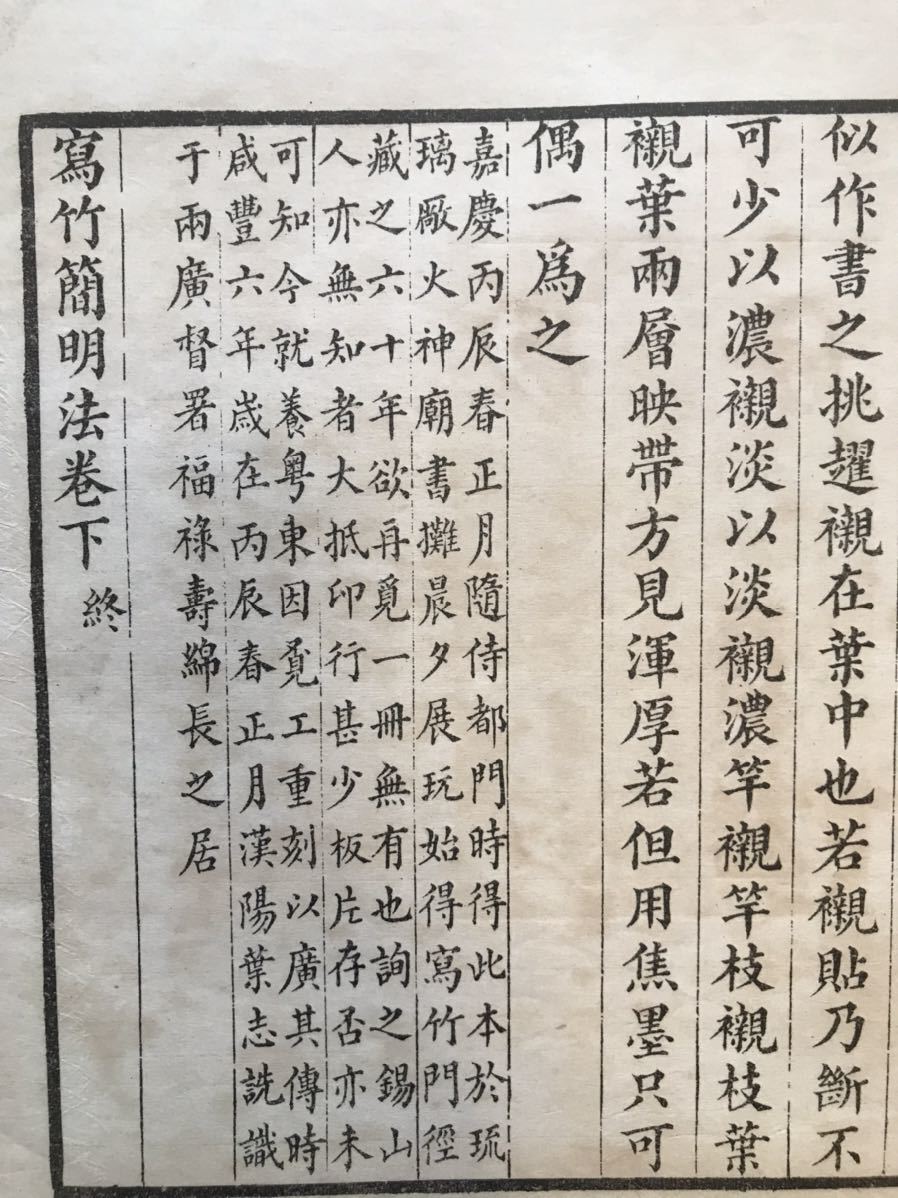 似作書之挑趯襯在葉中也若襯貼乃斷不
可少以濃襯淡以淡襯濃竿襯竿枝襯枝葉
襯葉兩層映帶方見渾厚若但用焦墨只可
偶一爲之
嘉慶丙辰春正月隨侍都門時得此本於琉
璃厰火神廟書攤晨夕展玩始得寫竹門徑
藏之六十年欲再覓一冊無有也詢之錫山
人亦無知者大抵印行甚少板片存否亦未
可知今就養粵東因覓工重刻以廣其傳時
咸豐六年歲在丙辰春正月漢陽葉志詵識
于兩廣督署福祿壽綿長之居
寫竹簡明法卷下 終